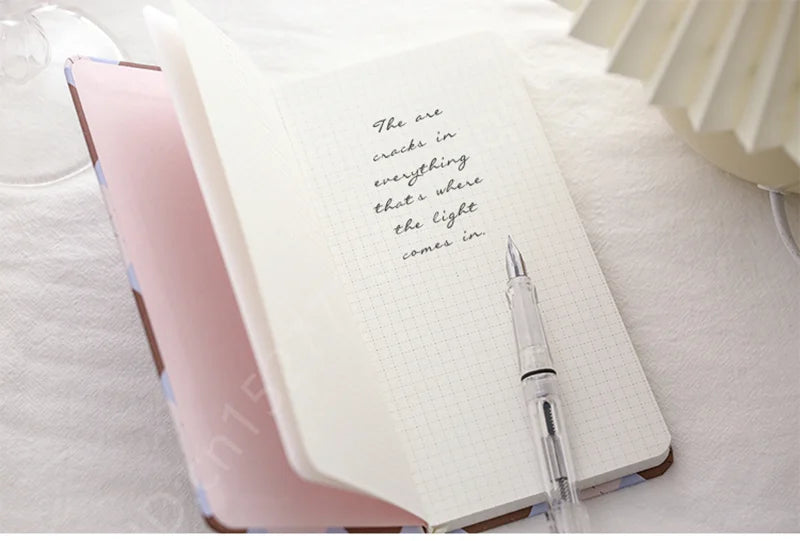 The are
cracks in
everything
that's where
the light
comes in.